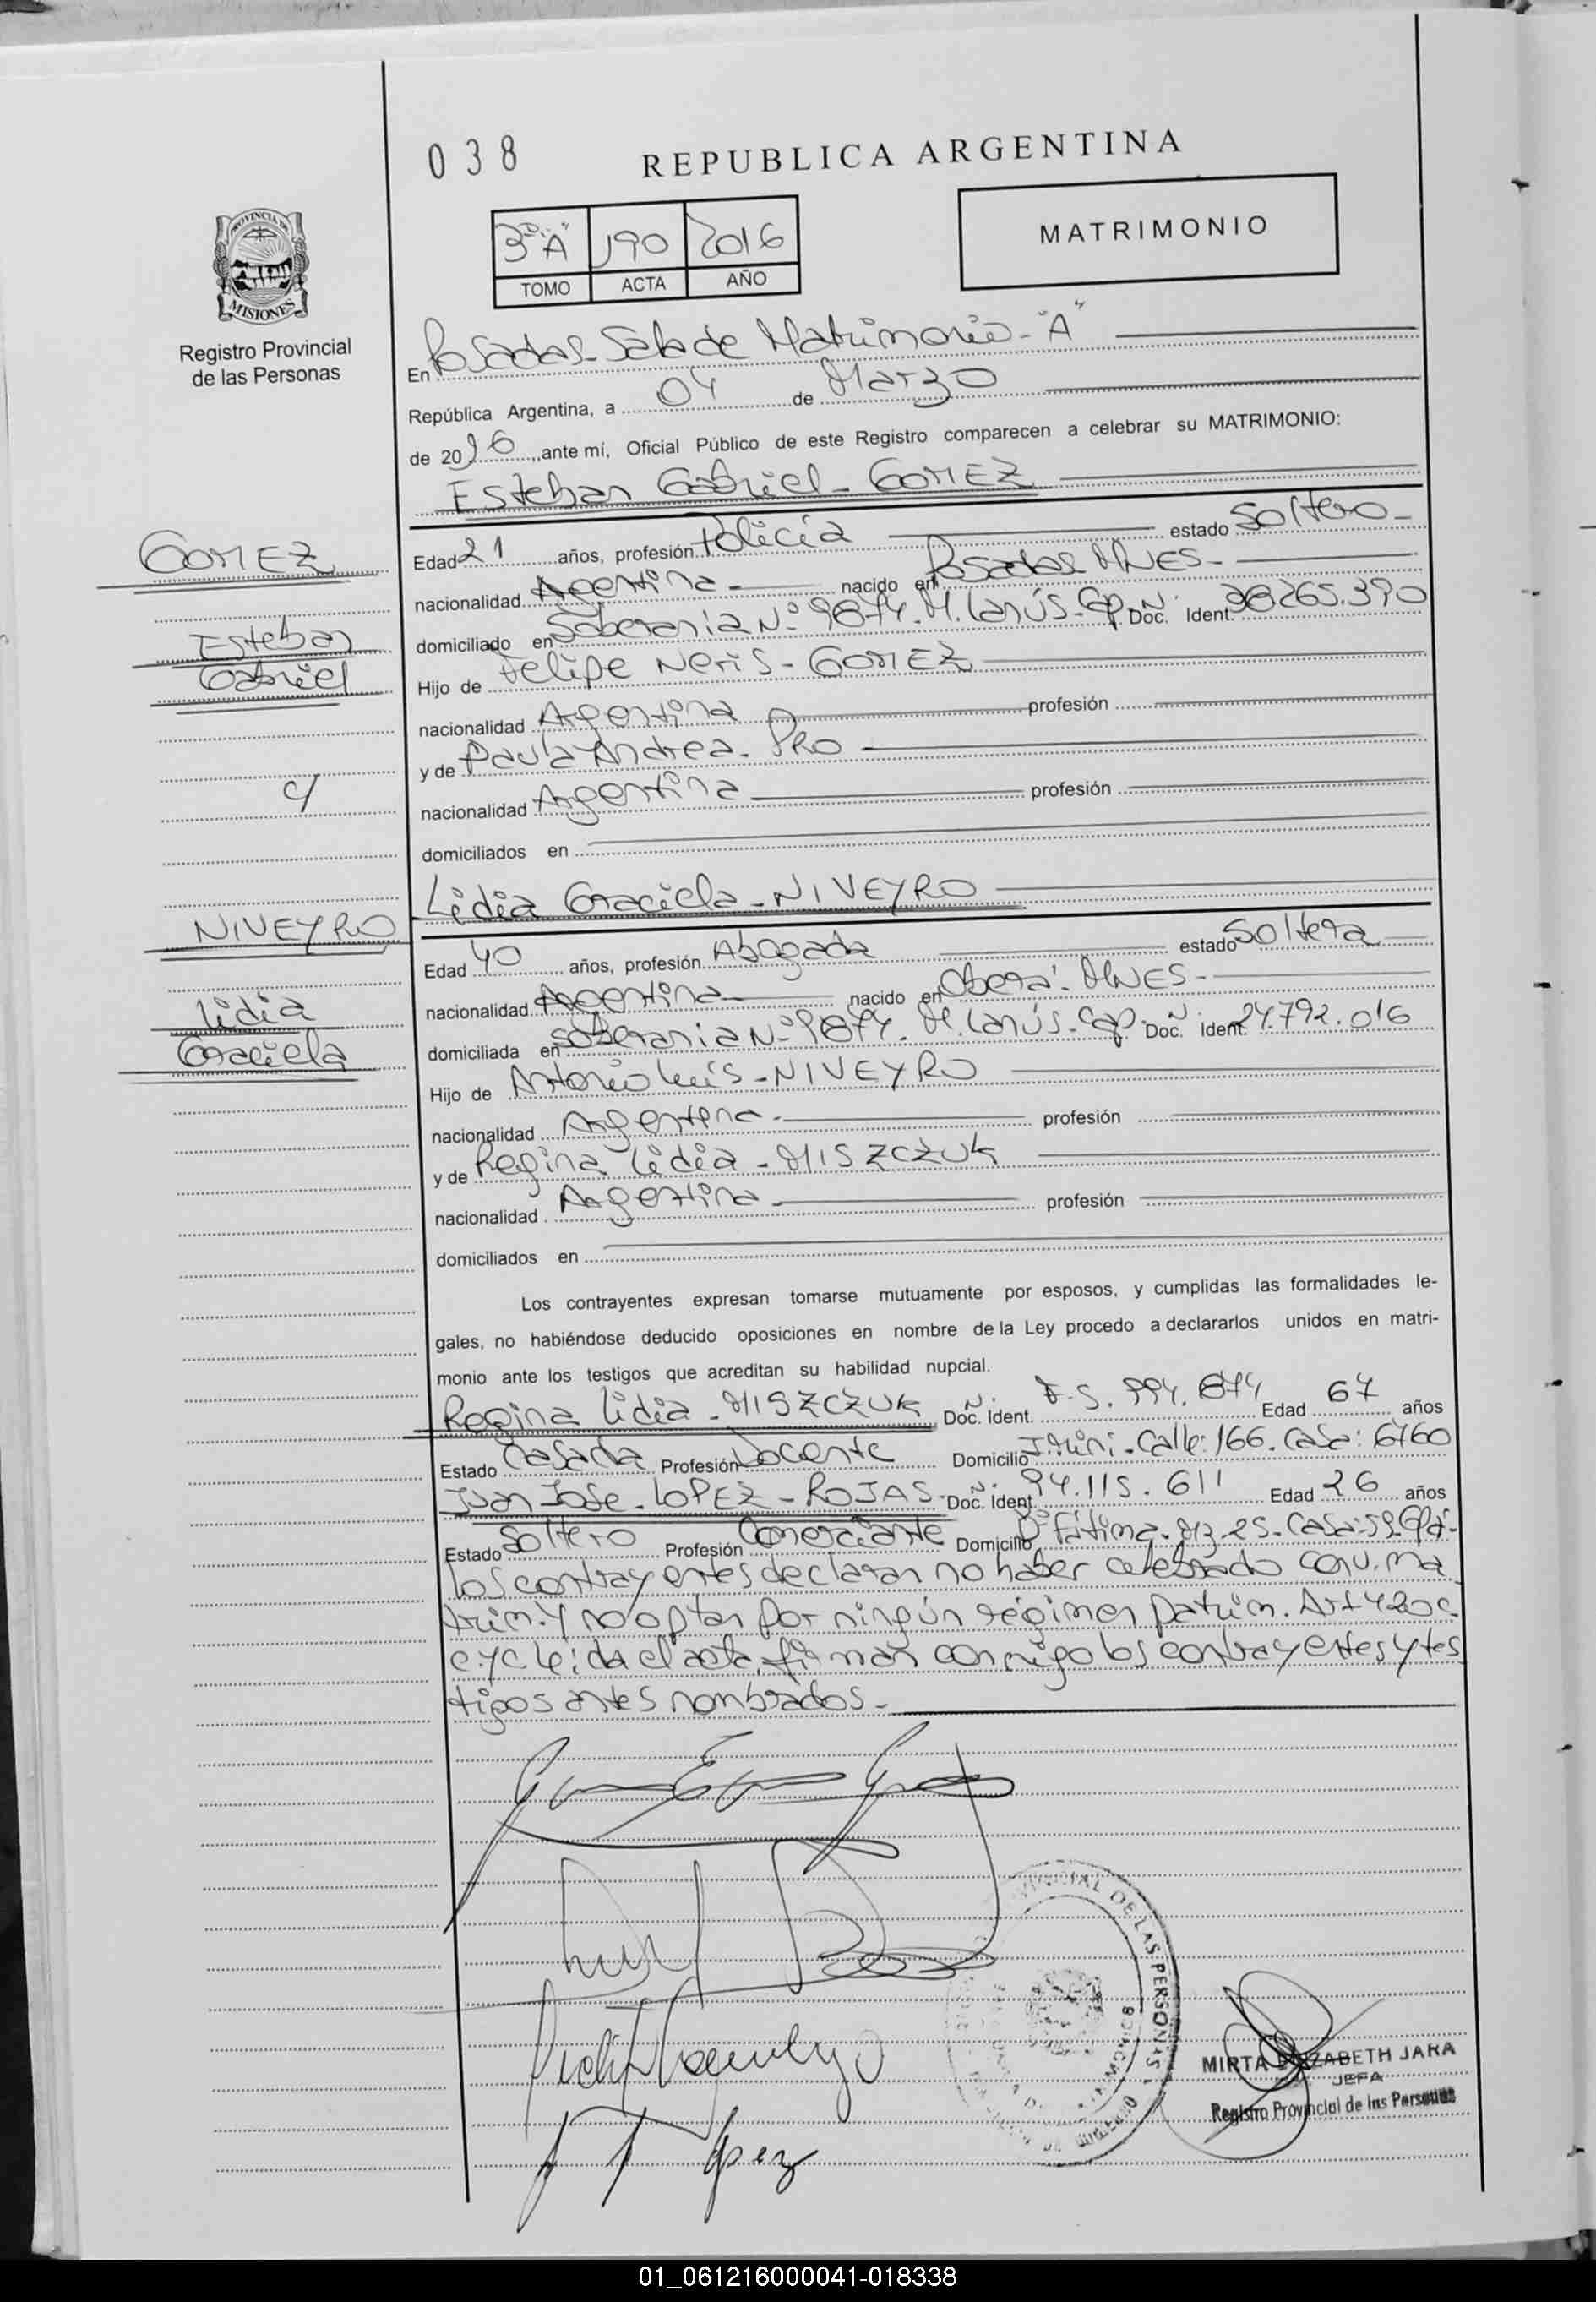 038
REPUBLICA ARGENTINA
3º "A" 190 2016
TOMO ACTA AÑO
MATRIMONIO
PROVINCIA DE MISIONES
Registro Provincial
de las Personas
En Posadas - Sala de Matrimonio - "A"
República Argentina, a 04 de Marzo
de 2016, ante mí, Oficial Público de este Registro comparecen a celebrar su MATRIMONIO:
Esteban Gabriel - GOMEZ
GOMEZ
Esteban
Gabriel
c/
NIVEYRO
Lidia
Graciela
Edad 21 años, profesión Policía estado Soltero -
nacionalidad Argentina - nacido en Posadas MNES. -
domiciliado en Soberania Nº 9874. M. Lanús - Cap. Doc. Ident. Nº 38265.390
Hijo de Felipe Neris - GOMEZ
nacionalidad Argentina profesión
y de Paula Andrea - PRO
nacionalidad Argentina profesión
domiciliados en
Lidia Graciela - NIVEYRO
Edad 40 años, profesión Abogada estado Soltera
nacionalidad Argentina nacido en Oberá. MNES -
domiciliada en Soberania Nº 9874. M. Lanús - Cap. Doc. Ident. Nº 24.792.016
Hijo de Antonio Luis - NIVEYRO
nacionalidad Argentina - profesión
y de Regina Lidia - MISZCZUK
nacionalidad Argentina - profesión
domiciliados en
Los contrayentes expresan tomarse mutuamente por esposos, y cumplidas las formalidades le-
gales, no habiéndose deducido oposiciones en nombre de la Ley procedo a declararlos unidos en matri-
monio ante los testigos que acreditan su habilidad nupcial.
Regina Lidia - MISZCZUK Doc. Ident. Nº 994.874 Edad 67 años
Estado Casada Profesión Docente Domicilio Calle: 166. Casa: 6760
Juan Jose - LOPEZ - ROJAS - Doc. Ident. Nº 94.115.611 Edad 26 años
Estado Soltero Profesión Comerciante Domicilio Bº Fátima. Mz. 25 - Casa: 59
los contrayentes declaran no haber celebrado conv. ma
trim. y no optan por ningún régimen patrim. Art 420 c.
c. y c. Leida el acta, firman conmigo los contrayentes y tes
tigos antes nombrados -
DE LAS PERSONAS
MIRTA ELIZABETH JARA
JEFA
Registro Provincial de las Personas
01_061216000041-018338